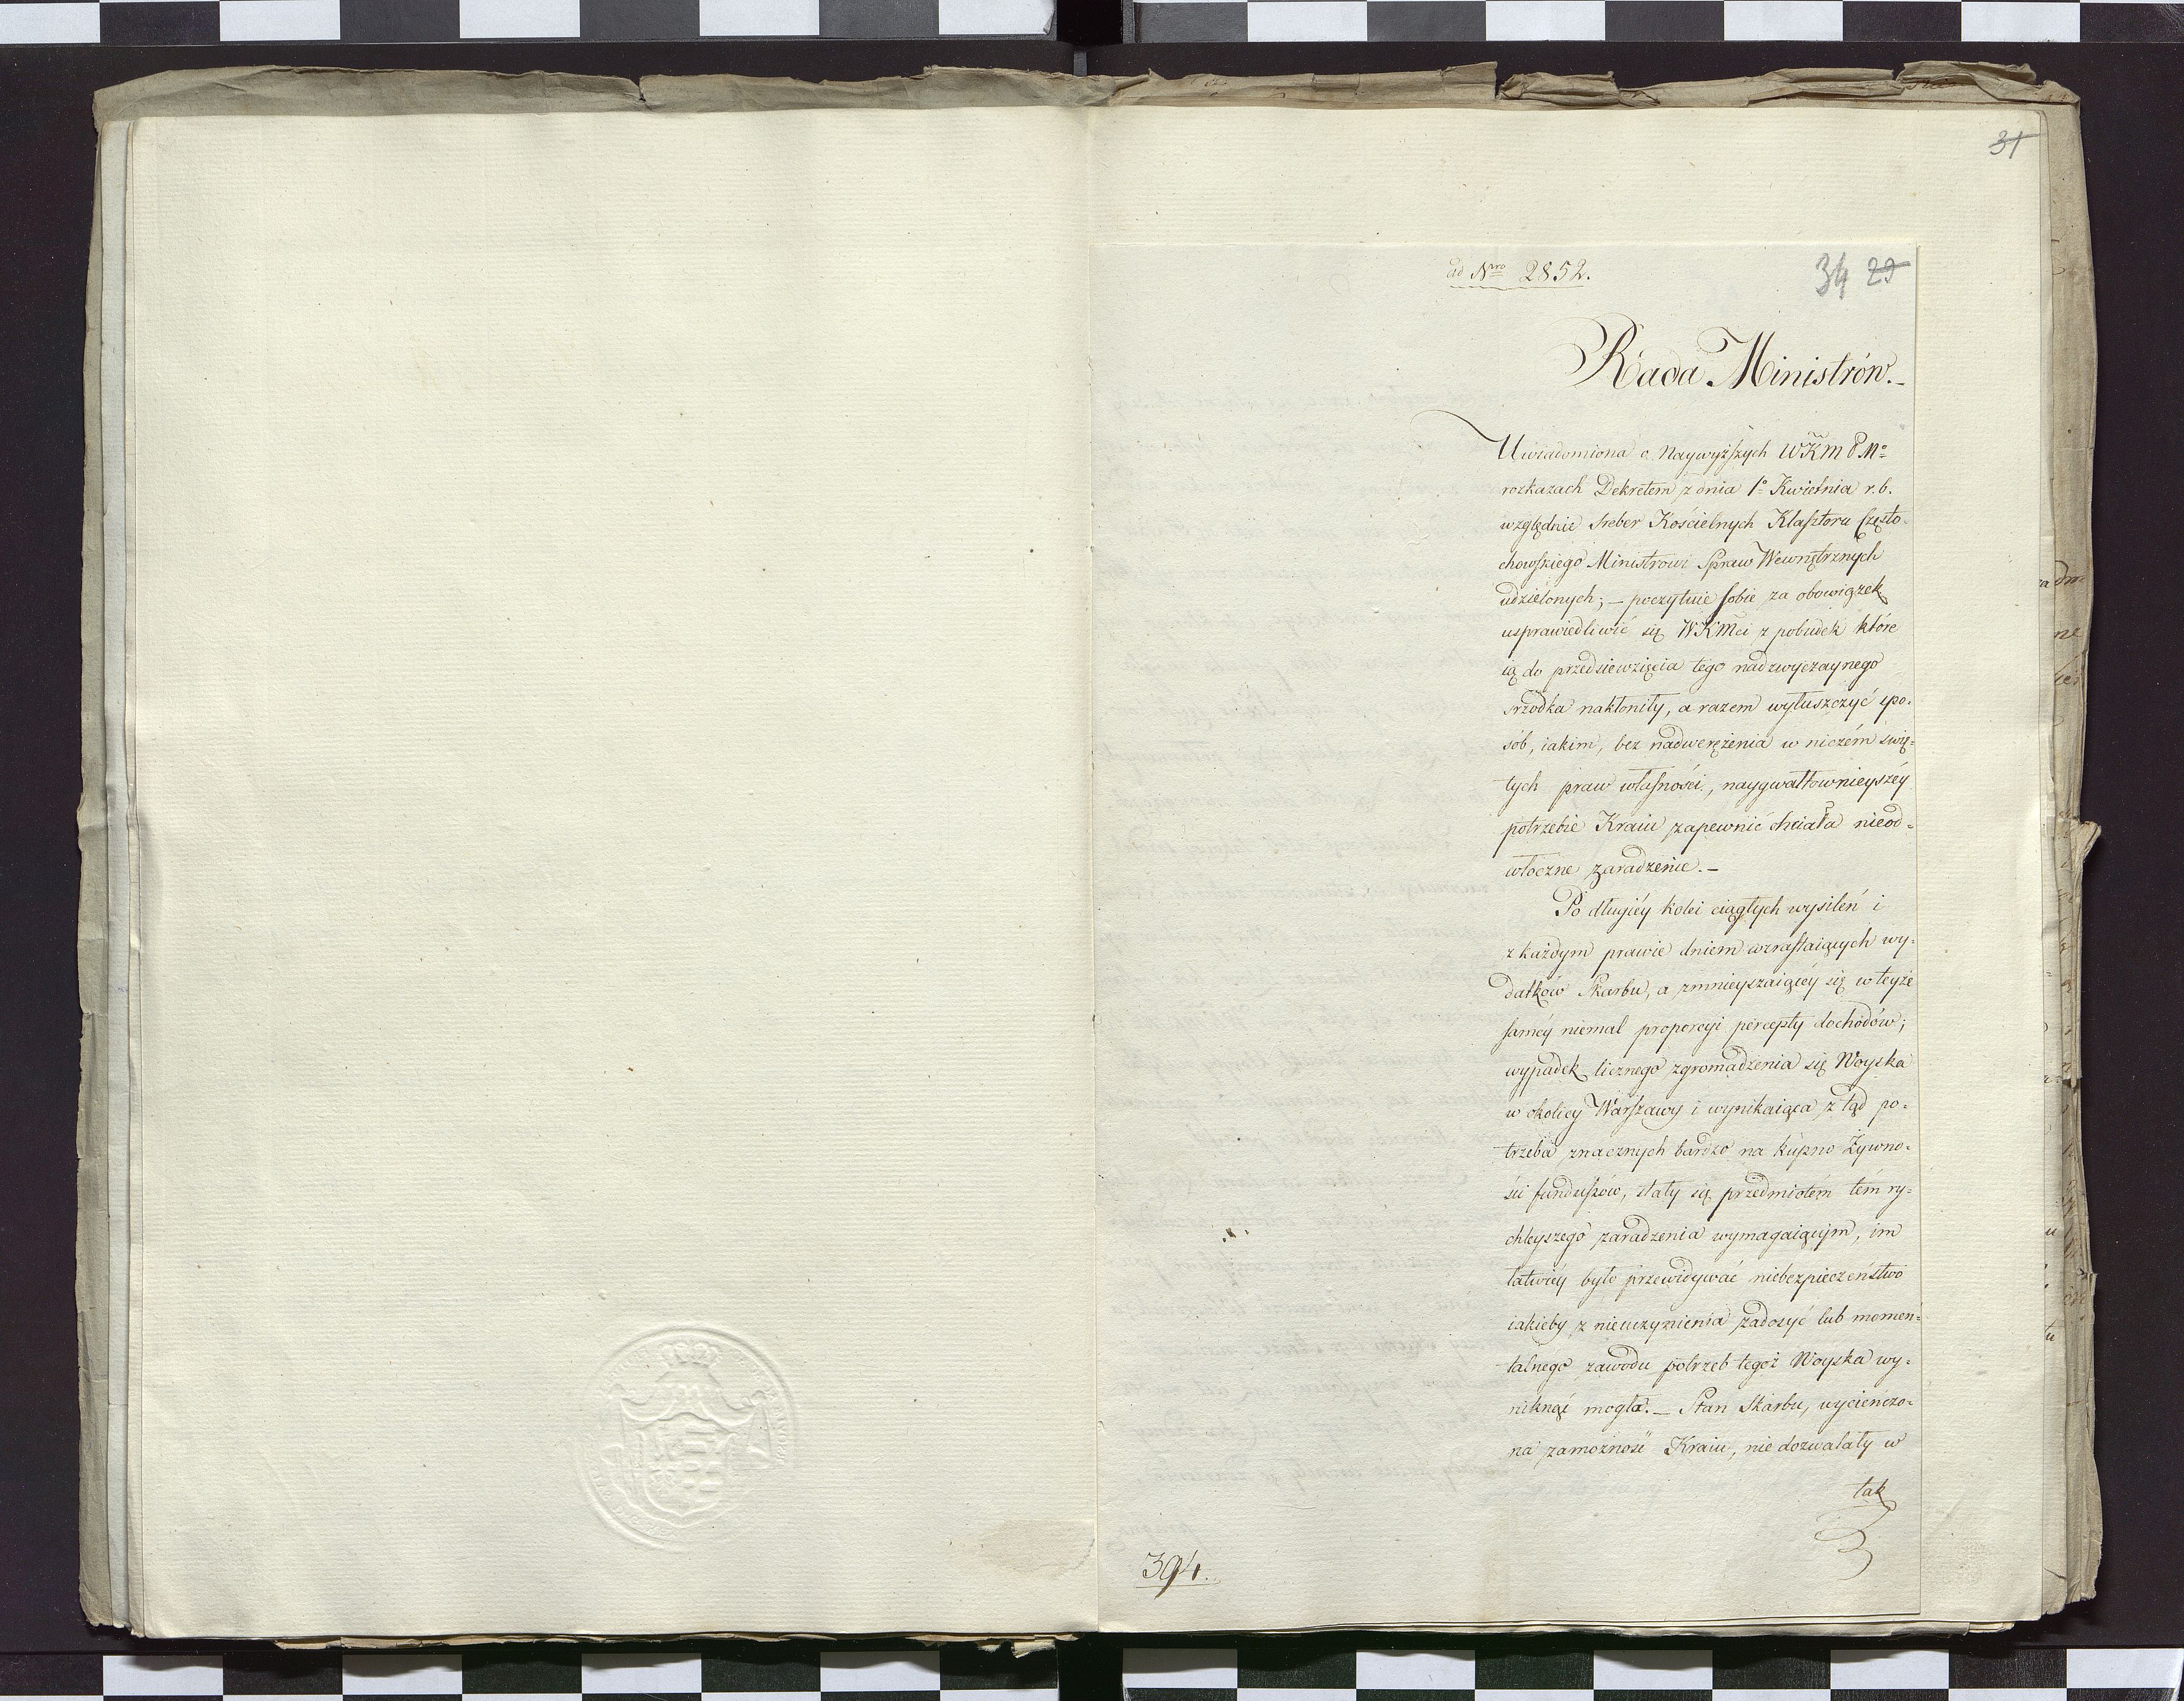 31
ad Nro 2852.
34 29
Rada Ministrów.–
Uwiadomiona o Naywyższych WKM PMo
rozkazach Dekretem z dnia 1o Kwietnia r. b.
względnie Sreber Kościelnych Klasztoru Często-
chowskiego Ministrowi Spraw Wewnętrznych
udzielonych; – poczytuie sobie za obowiązek
usprawiedliwić się WKMci z pobudek które
ią do przedsiewzięcia tego nadzwyczaynego
srzodka nakłoniły, a razem wyłuszczyć spo-
sób, iakim, bez nadwerężenia w niczém świę-
tych praw własności, naygwałtownieyszéy
potrzebie Kraiu zapewnić chciała nieod-
włoczne zaradzenie. –
Po długiéy kolei ciągłych wysileń i
z każdym prawie dniem wzrastaiących wy-
datków Skarbu, a zmnieyszaiącéy się w teyże
saméy niemal proporcyi percepty dochodów;
wypadek licznego zgromadzenia się Woyska
w okolicy Warszawy i wynikaiąca z tąd po-
trzeba znacznych bardzo na kupno Żywno-
ści funduszów, stały się przedmiotém tém ry-
chleyszego zaradzenia wymagaiącym, im
łatwiéy było przewidywać niebezpieczeństwo
iakieby z nieuczynienia zadosyć lub momen-
talnego zawodu potrzeb tegoż Woyska wy-
niknąć mogła. – Stan Skarbu, wycieńczo-
na zamożność Kraiu, nie dozwalały w
tak
394.